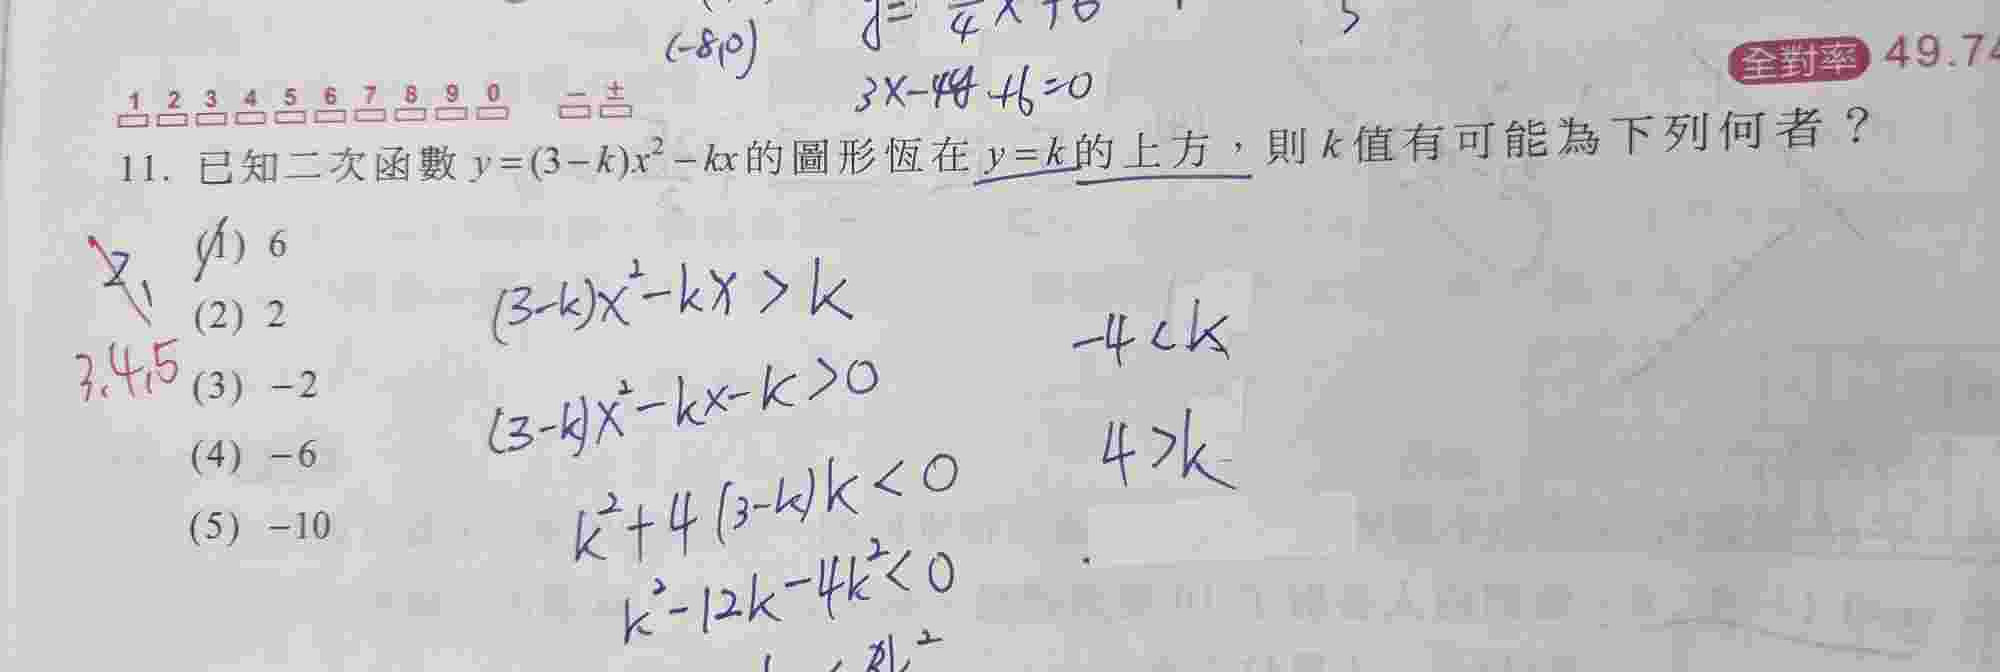 (-8,0)
3x-4y+6=0
全對率 49.74
1 2 3 4 5 6 7 8 9 0 − ±
11. 已知二次函數 y=(3−k)x²−kx的圖形恆在 y=k的上方，則 k 值有可能為下列何者？
(1) 6
2,
(2) 2
3,4,5
(3) −2
(4) −6
(5) −10
(3-k)x²-kx>k
(3-k)x²-kx-k>0
k²+4(3-k)k<0
k²-12k-4k²<0
-4<k
4>k